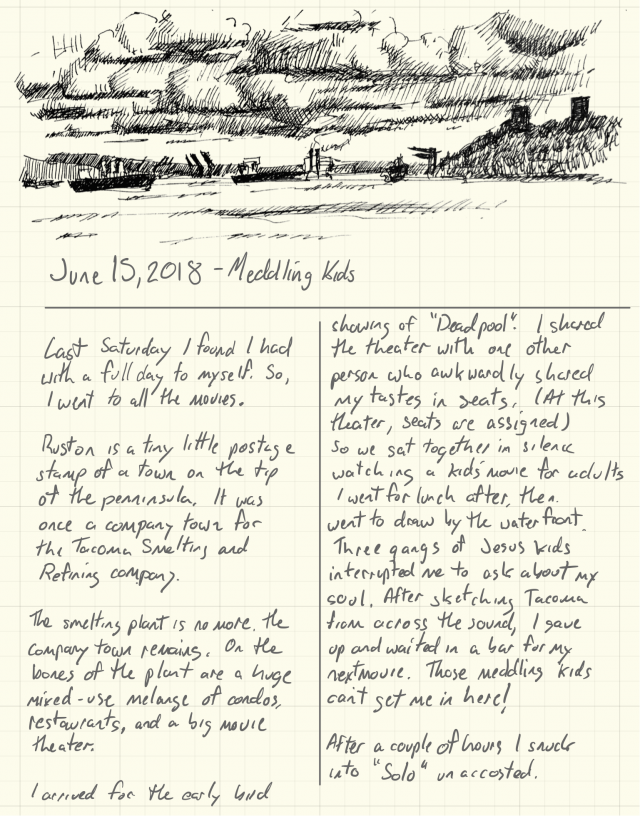 June 15, 2018 - Meddling Kids
Last Saturday I found I had
with a full day to myself. So,
I went to all the movies.
Ruston is a tiny little postage
stamp of a town on the tip
of the penninsula. It was
once a company town for
the Tacoma Smelting and
Refining company.
The smelting plant is no more. the
company town remains. On the
bones of the plant are a huge
mixed-use melange of condos,
restaurants, and a big movie
theater.
I arrived for the early bird
showing of "Deadpool". I shared
the theater with one other
person who awkwardly shared
my tastes in seats. (At this
theater, seats are assigned)
So we sat together in silence
watching a kids' movie for adults
I went for lunch after, then
went to draw by the waterfront.
Three gangs of Jesus kids
interrupted me to ask about my
soul. After sketching Tacoma
from across the sound, I gave
up and waited in a bar for my
next movie. Those meddling kids
can't get me in here!
After a couple of hours I snuck
into "Solo" unaccosted.